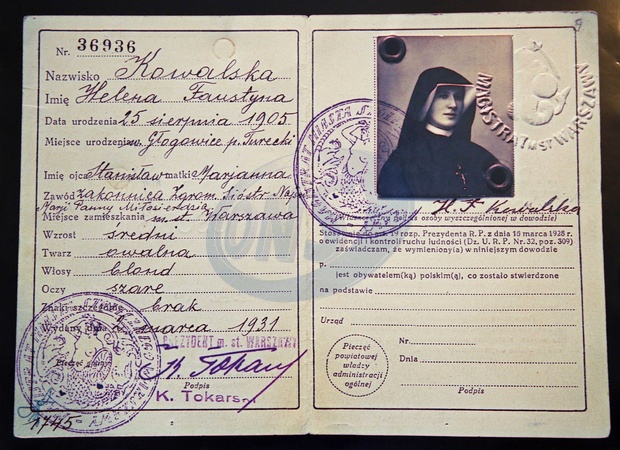 Nr. 36936
Nazwisko Kowalska
Imię Helena Faustyna
Data urodzenia 25 sierpnia 1905
Miejsce urodzenia w. Głogowice p. Turecki
Imię ojca Stanisław matki Marjanna
Zawód zakonnica Zgrom. Sióstr Naj.
Marji Panny Miłosierdzia
Miejsce zamieszkania m. st. Warszawa
Wzrost średni
Twarz owalna
Włosy blond
Oczy szare
Znaki szczególne brak
Wydany dnia marca 1931
PREZYDENT m. st. WARSZAWY
Pieczęć
Podpis
K. Tokarski
1745
MAGISTRAT m. st. WARSZAWY
H. F. Kowalska
(Własnoręczny podpis osoby wyszczególnionej w dowodzie)
Stosownie do 19 rozp. Prezydenta R. P. z dnia 16 marca 1928 r.
o ewidencji i kontroli ruchu ludności (Dz. U. R. P. Nr. 32, poz. 309)
zaświadczam, że wymieniony(a) w niniejszym dowodzie
p.
jest obywatelem(ką) polskim(ą), co zostało stwierdzone
na podstawie
Urząd
Pieczęć
powiatowej
władzy
administracji
ogólnej
Nr.
Dnia
Podpis